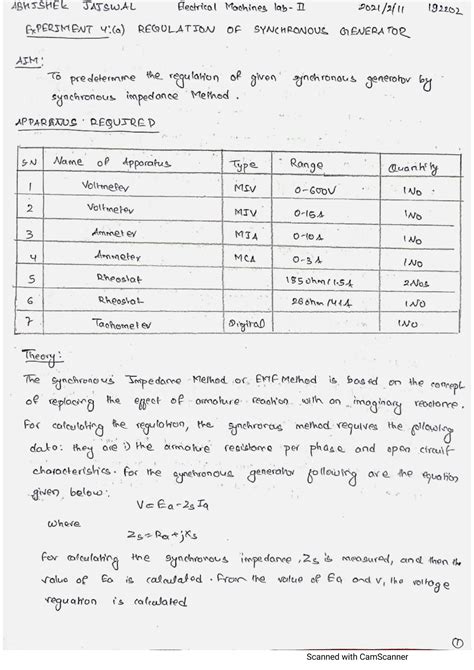 ABHISHEK JAISWAL Electrical Machines lab-II 2021/2/11 192202
EXPERIMENT 4:(a) REGULATION OF SYNCHRONOUS GENERATOR
AIM:
To predetermine the regulation of given synchronous generator by
synchronous impedance Method.
APPARATUS REQUIRED
S.N Name of Apparatus Type Range Quantity
1 Voltmeter MSV 0-600V 1No
2 Voltmeter MIV 0-15A 1No
3 Ammeter MIA 0-10A 1No
4 Ammeter MCA 0-3A 1No
5 Rheostat 185ohm/1.5A 2Nos
6 Rheostat 26ohm/4.1A 1NO
7 Tachometer Digital 1NO
Theory:
The Synchronous Impedance Method or EMF Method is based on the concept
of replacing the effect of armature reaction with an imaginary reactance.
For calculating the regulation, the synchronous method requires the following
data: they are i) the armature resistance per phase and open circuit
characteristics. for the synchronous generator following are the equation
given below:
V = Ea - ZsIa
where
Zs = Ra + jXs
for calculating the synchronous impedance, Zs is measured, and then the
value of Ea is calculated. from the value of Ea and V, the voltage
reguation is calculated
1
Scanned with CamScanner